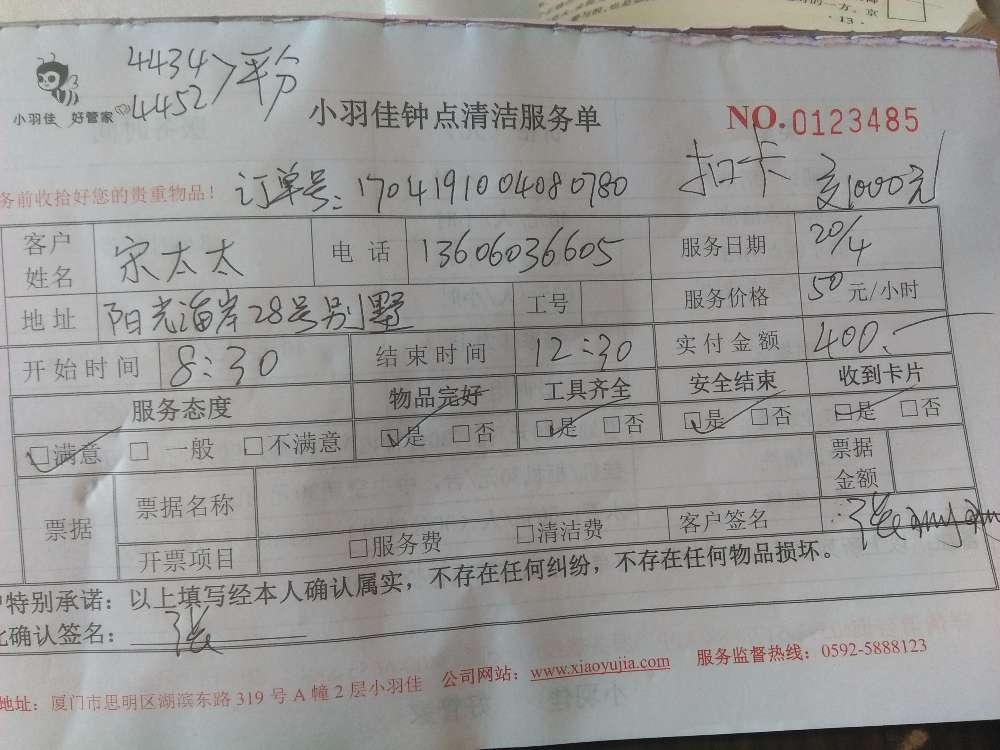 的一方。京
· 13 ·
4434
4452 >平分
小羽佳 好管家
小羽佳钟点清洁服务单
NO. 0123485
务前收拾好您的贵重物品！ 订单号：1704191004080780 扣卡 支1000元
客户姓名 宋太太 电话 13606036605 服务日期 20/4
地址 阳光海岸28号别墅 工号 服务价格 50 元/小时
开始时间 8:30 结束时间 12:30 实付金额 400.
服务态度 物品完好 工具齐全 安全结束 收到卡片
☑满意 □一般 □不满意 ☑是 □否 ☑是 □否 ☑是 □否 ☑是 □否
票据 票据名称 票据金额
开票项目 □服务费 □清洁费 客户签名 : 张
户特别承诺：以上填写经本人确认属实，不存在任何纠纷，不存在任何物品损坏。
此确认签名： 张
地址：厦门市思明区湖滨东路 319 号 A 幢 2 层小羽佳 公司网站：www.xiaoyujia.com 服务监督热线：0592-5888123